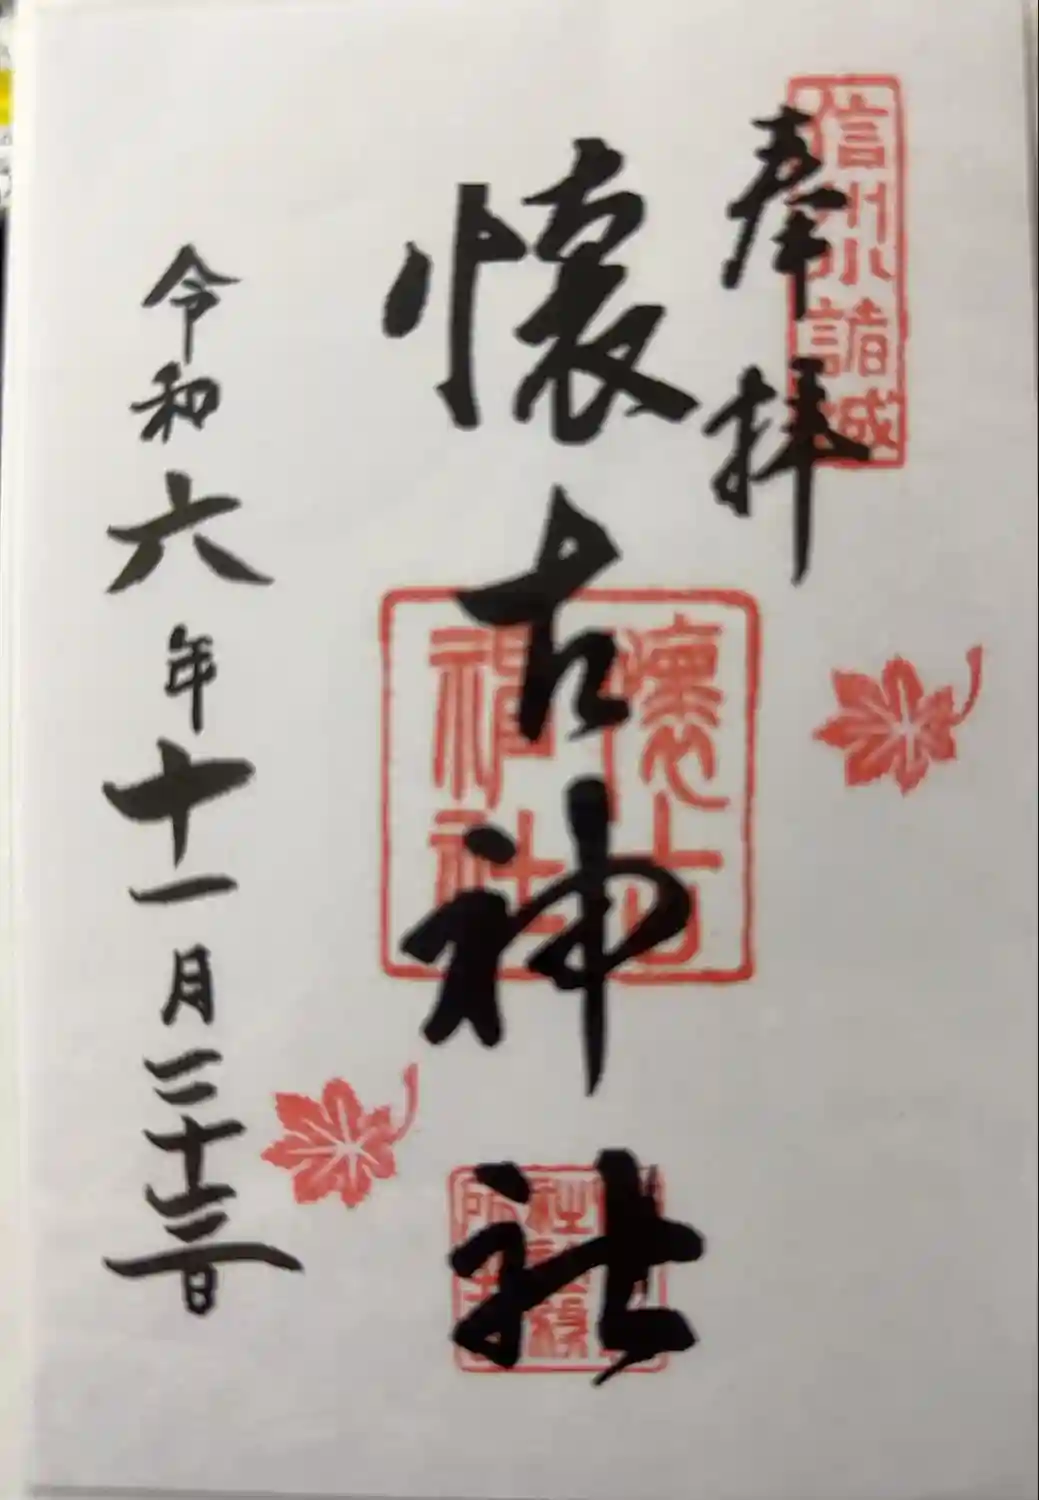 信州小諸城
奉拝
懐古神社
懐古
神社
令和六年十一月二十三日